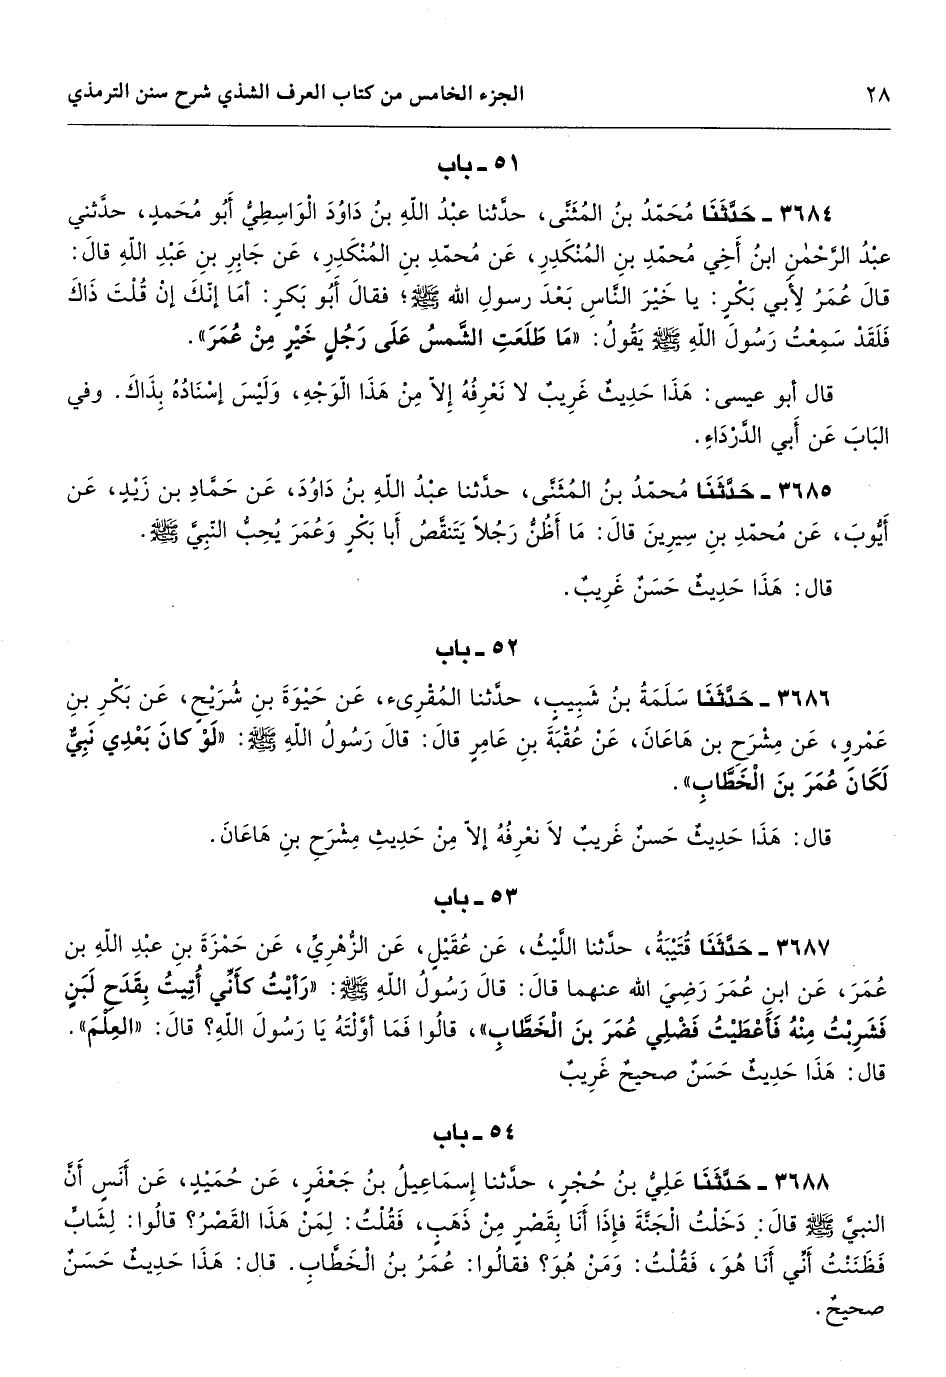 ٢٨ الجزء الخامس من كتاب العرف الشذي شرح سنن الترمذي
٥١ ـ باب
٣٦٨٤ ـ حَدَّثَنَا مُحَمّدُ بنُ المُثَنَّى، حدَّثنا عبْدُ اللّهِ بنُ دَاوُدَ الْوَاسِطِيُّ أَبُو مُحَمدٍ، حدَّثني
عبْدُ الرَّحْمٰنِ ابنُ أَخِي مُحمدِ بنِ المُنْكَدِرِ، عَن مُحمّدِ بنِ المُنْكَدِرِ، عَن جَابِرِ بنِ عَبْدِ اللّهِ قالَ:
قالَ عُمَرُ لِأبي بَكْرٍ: يا خَيْرَ النَّاسِ بَعْدَ رسولِ الله ﷺ؛ فقالَ أَبُو بَكرٍ: أمَا إنّكَ إنْ قُلْتَ ذَاكَ
فَلَقَدْ سَمِعْتُ رَسُولَ اللّهِ ﷺ يَقُولُ: «مَا طَلَعَتِ الشَّمسُ عَلَى رَجُلٍ خَيْرٍ مِنْ عُمَرَ».
قال أبو عيسى: هَذَا حَديثٌ غَريبٌ لا نَعْرِفُهُ إلاّ مِنْ هَذَا الْوَجْهِ، وَلَيْسَ إسْنَادُهُ بِذَاكَ. وفي
البَابَ عَن أَبي الدَّرْدَاءِ.
٣٦٨٥ ـ حَدَّثَنَا مُحمّدُ بنُ المُثَنَّى، حدَّثنا عبْدُ اللّهِ بنُ دَاوُدَ، عَن حَمَّادِ بن زَيْدٍ، عَن
أَيُّوبَ، عَن مُحمّدِ بنِ سِيرِينَ قالَ: مَا أَظُنُّ رَجُلاً يَتَنقَّصُ أبا بَكْرٍ وَعُمَرَ يُحِبُّ النّبيَّ ﷺ.
قال: هَذَا حَدِيثٌ حَسَنٌ غَرِيبٌ.
٥٢ ـ باب
٣٦٨٦ ـ حَدَّثَنَا سَلَمَةُ بنُ شَبِيبٍ، حدَّثنا المُقْرِىء، عَن حَيْوَةَ بنِ شُرَيْحٍ، عَن بَكْرِ بنِ
عَمْرٍو، عَن مِشْرَحِ بن هَاعَانَ، عَنْ عُقْبَةَ بنِ عامِرٍ قالَ: قالَ رَسُولُ اللّهِ ﷺ: «لَوْ كانَ بَعْدِي نَبِيٌّ
لَكَانَ عُمَرَ بنَ الْخَطَّابِ».
قال: هَذَا حَدِيثٌ حَسنٌ غَرِيبٌ لاَ نَعْرِفُهُ إلاّ مِنْ حَدِيثِ مِشْرَحِ بنِ هَاعَانَ.
٥٣ ـ باب
٣٦٨٧ ـ حَدَّثَنَا قُتَيْبَةُ، حدَّثنا اللّيْثُ، عَن عُقَيْلٍ، عَن الزُّهْرِيِّ، عَن حَمْزَةَ بنِ عبْدِ اللّهِ بن
عُمَرَ، عَن ابنِ عُمَرَ رَضِيَ الله عنهما قالَ: قالَ رَسُولُ اللّهِ ﷺ: «رَأيْتُ كأنِّي أُتِيتُ بِقَدَحِ لَبَنٍ
فَشَرِبْتُ مِنْهُ فَأَعْطَيْتُ فَضْلِي عُمَرَ بنَ الْخَطَّابِ»، قالُوا فَمَا أوّلْتَهُ يَا رَسُولَ اللّهِ؟ قالَ: «العِلْمَ».
قال: هَذَا حَدِيثٌ حَسَنٌ صحيحٌ غَرِيبٌ
٥٤ ـ باب
٣٦٨٨ ـ حَدَّثَنَا عَلِيُّ بنُ حُجْرٍ، حدَّثنا إسمَاعِيلُ بنُ جَعْفَرٍ، عَن حُمَيْدٍ، عَن أَنَسٍ أَنَّ
النبيَّ ﷺ قالَ: دَخَلْتُ الْجَنَّةَ فإذَا أَنَا بِقَصْرٍ مِنْ ذَهَبٍ، فَقُلْتُ: لِمَنْ هَذَا القَصْرُ؟ قالُوا: لِشَابٍّ
فَظَنَنْتُ أَنِّي أَنَا هُوَ، فَقُلْتُ: وَمَنْ هُوَ؟ فقالُوا: عُمَرُ بنُ الْخَطَّابِ. قال: هَذَا حَدِيثٌ حَسَنٌ
صحيحٌ.